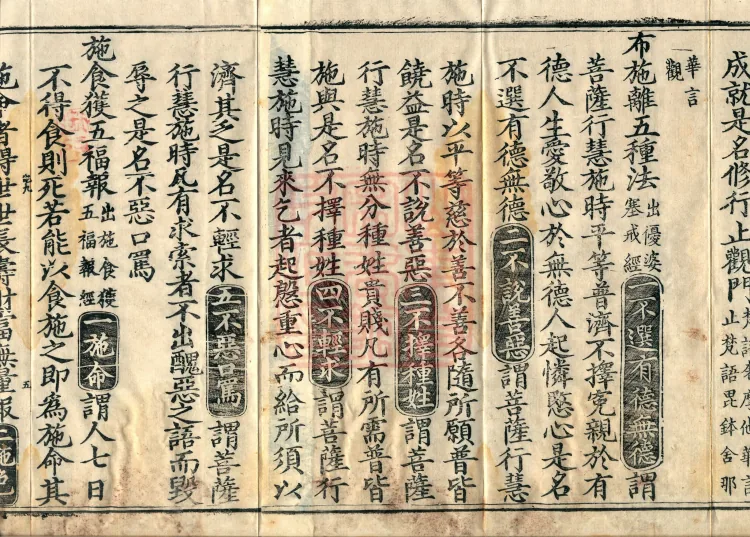 成就是名修行止觀門
止梵語毘鉢舍那
華言
觀
布施離五種法出優婆塞戒經一不選有德無德謂
菩薩行慧施時平等普濟不擇冤親於有
德人生愛敬心於無德人起憐愍心是名
不選有德無德二不說善惡謂菩薩行慧
施時以平等慈於善不善各隨所願普皆
饒益是名不說善惡三不擇種姓謂菩薩
行慧施時無分種姓貴賤凡有所需普皆
施與是名不擇種姓四不輕求謂菩薩行
慧施時見來乞者起慇重心而給所須以
濟其乏是名不輕求五不惡口罵謂菩薩
行慧施時凡有求索者不出醜惡之語而毀
辱之是名不惡口罵
施食獲五福報出施食獲五福報經一施命謂人七日
不得食則死若能以食施之即為施命其
施命者得世世長壽財富無量報二施色
五